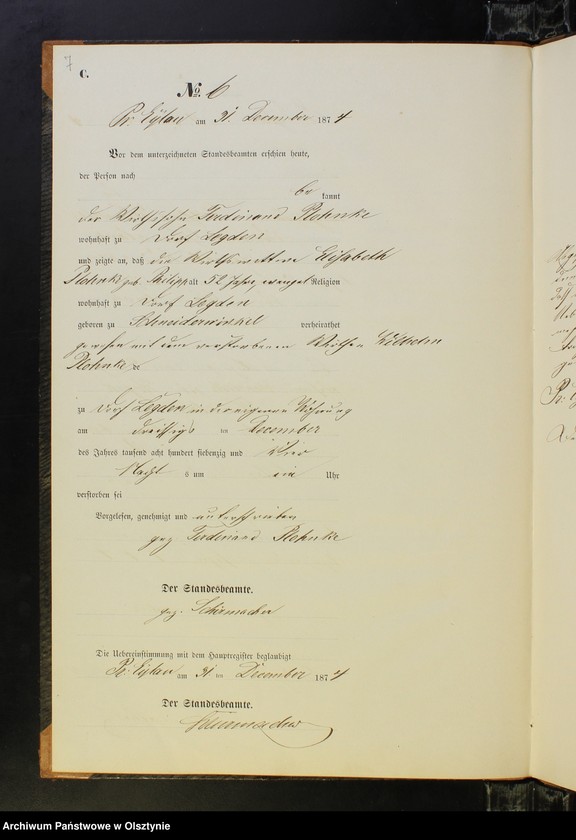 7
C.
No. 6
Pr. Eylau am 31. December 1874
Vor dem unterzeichneten Standesbeamten erschien heute,
der Person nach
be kannt
der Wirthssohn Ferdinand Plohnke
wohnhaft zu Dorf Legden
und zeigte an, daß die Wirthswittwe Elisabeth
Plohnke geb. Philipp alt 52 Jahre, evangel Religion
wohnhaft zu Dorf Legden
geboren zu Schneiderwinkel verheirathet
gewesen mit dem verstorbenen Wirthen Wilhelm
Plohnke
zu Dorf Legden in der eigenen Wohnung
am dreißigs ten December
des Jahres tausend acht hundert siebenzig und vier
Nacht s um ein Uhr
verstorben sei
Vorgelesen, genehmigt und unterschrieben
gez Ferdinand Plohnke
Der Standesbeamte.
gez. Schirmacher
Die Uebereinstimmung mit dem Hauptregister beglaubigt
Pr. Eylau am 31 ten December 1874
Der Standesbeamte.
Schirmacher
Archiwum Państwowe w Olsztynie